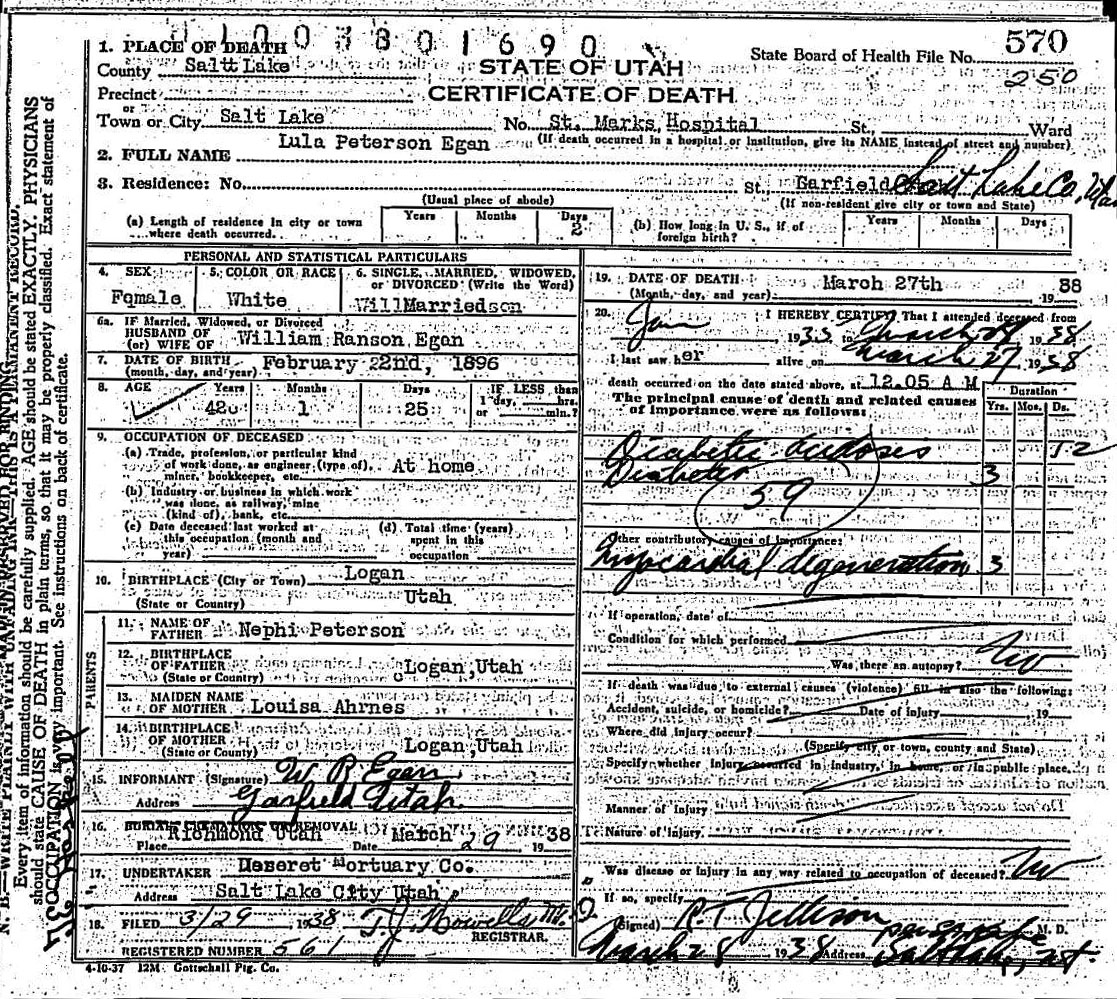 0100380 1690
570
State Board of Health File No.
250
1. PLACE OF DEATH
County Saltt Lake
STATE OF UTAH
Precinct
CERTIFICATE OF DEATH
or
Town or City Salt Lake No. St. Marks Hospital St., Ward
(If death occurred in a hospital or institution, give its NAME instead of street and number)
Lula Peterson Egan
2. FULL NAME
3. Residence: No. St., Garfield Salt Lake Co,
(Usual place of abode) (If non-resident give city or town and State)
(a) Length of residence in city or town where death occurred. Years Months Days 2
(b) How long in U. S., if of foreign birth? Years Months Days
PERSONAL AND STATISTICAL PARTICULARS
4. SEX Fqmale
5. COLOR OR RACE White
6. SINGLE, MARRIED, WIDOWED, or DIVORCED (Write the Word)
WillMarriedson
6a. IF Married, Widowed, or Divorced
HUSBAND OF
(or) WIFE OF William Ranson Egan
7. DATE OF BIRTH February 22nd, 1896
(month, day, and year)
8. AGE Years Months Days IF LESS than
42 1 25 1 day, hrs.
or min.?
9. OCCUPATION OF DECEASED
(a) Trade, profession, or particular kind
of work done, as engineer (type of), At home
miner, bookkeeper, etc.
(b) Industry or business in which work
was done, as railway, mine
(kind of), bank, etc.
(c) Date deceased last worked at
this occupation (month and
year)
(d) Total time (years)
spent in this
occupation
10. BIRTHPLACE (City or Town) Logan
(State or Country) Utah
PARENTS
11. NAME OF
FATHER Nephi Peterson
12. BIRTHPLACE
OF FATHER Logan,Utah
(State or Country)
13. MAIDEN NAME
OF MOTHER Louisa Ahrnes
14. BIRTHPLACE
OF MOTHER Logan,Utah
(State or County)
15. INFORMANT (Signature) W R Egan
Address Garfield Utah.
16. BURIAL, CREMATION OR REMOVAL
Place Richmond Utah Date March 29 1938
17. UNDERTAKER Deseret Mortuary Co.
Address Salt Lake City Utah
18. FILED 3/29, 1938 T. J. Howells
REGISTRAR.
REGISTERED NUMBER 561
4-10-37 12M Gottschall Ptg. Co.
19. DATE OF DEATH March 27th 1938
(Month, day, and year)
20. I HEREBY CERTIFY, That I attended deceased from
Jan 1935 to March 27 1938
I last saw her alive on March 27 1938
death occurred on the date stated above, at 12.05 A M
The principal cause of death and related causes
of importance were as follows:
Duration
Yrs. Mos. Ds.
Diabetic acidosis
Diabetes 3
59
Other contributory causes of importance:
Myocardial degeneration 3
If operation, date of
Condition for which performed
Was there an autopsy? No
If death was due to external causes (violence) fill in also the following:
Accident, suicide, or homicide? Date of injury 19
Where did injury occur?
(Specify city or town, county and State)
Specify whether injury occurred in industry, in home, or in public place.
Manner of injury
Nature of injury
Was disease or injury in any way related to occupation of deceased? No
If so, specify
(Signed) R. T. Jellison M. D.
March 28 1938 Address Salt Lake, Ut.
Every item of information should be carefully supplied. AGE should be stated EXACTLY. PHYSICIANS
should state CAUSE OF DEATH in plain terms, so that it may be properly classified. Exact statement of
OCCUPATION is very important. See instructions on back of certificate.